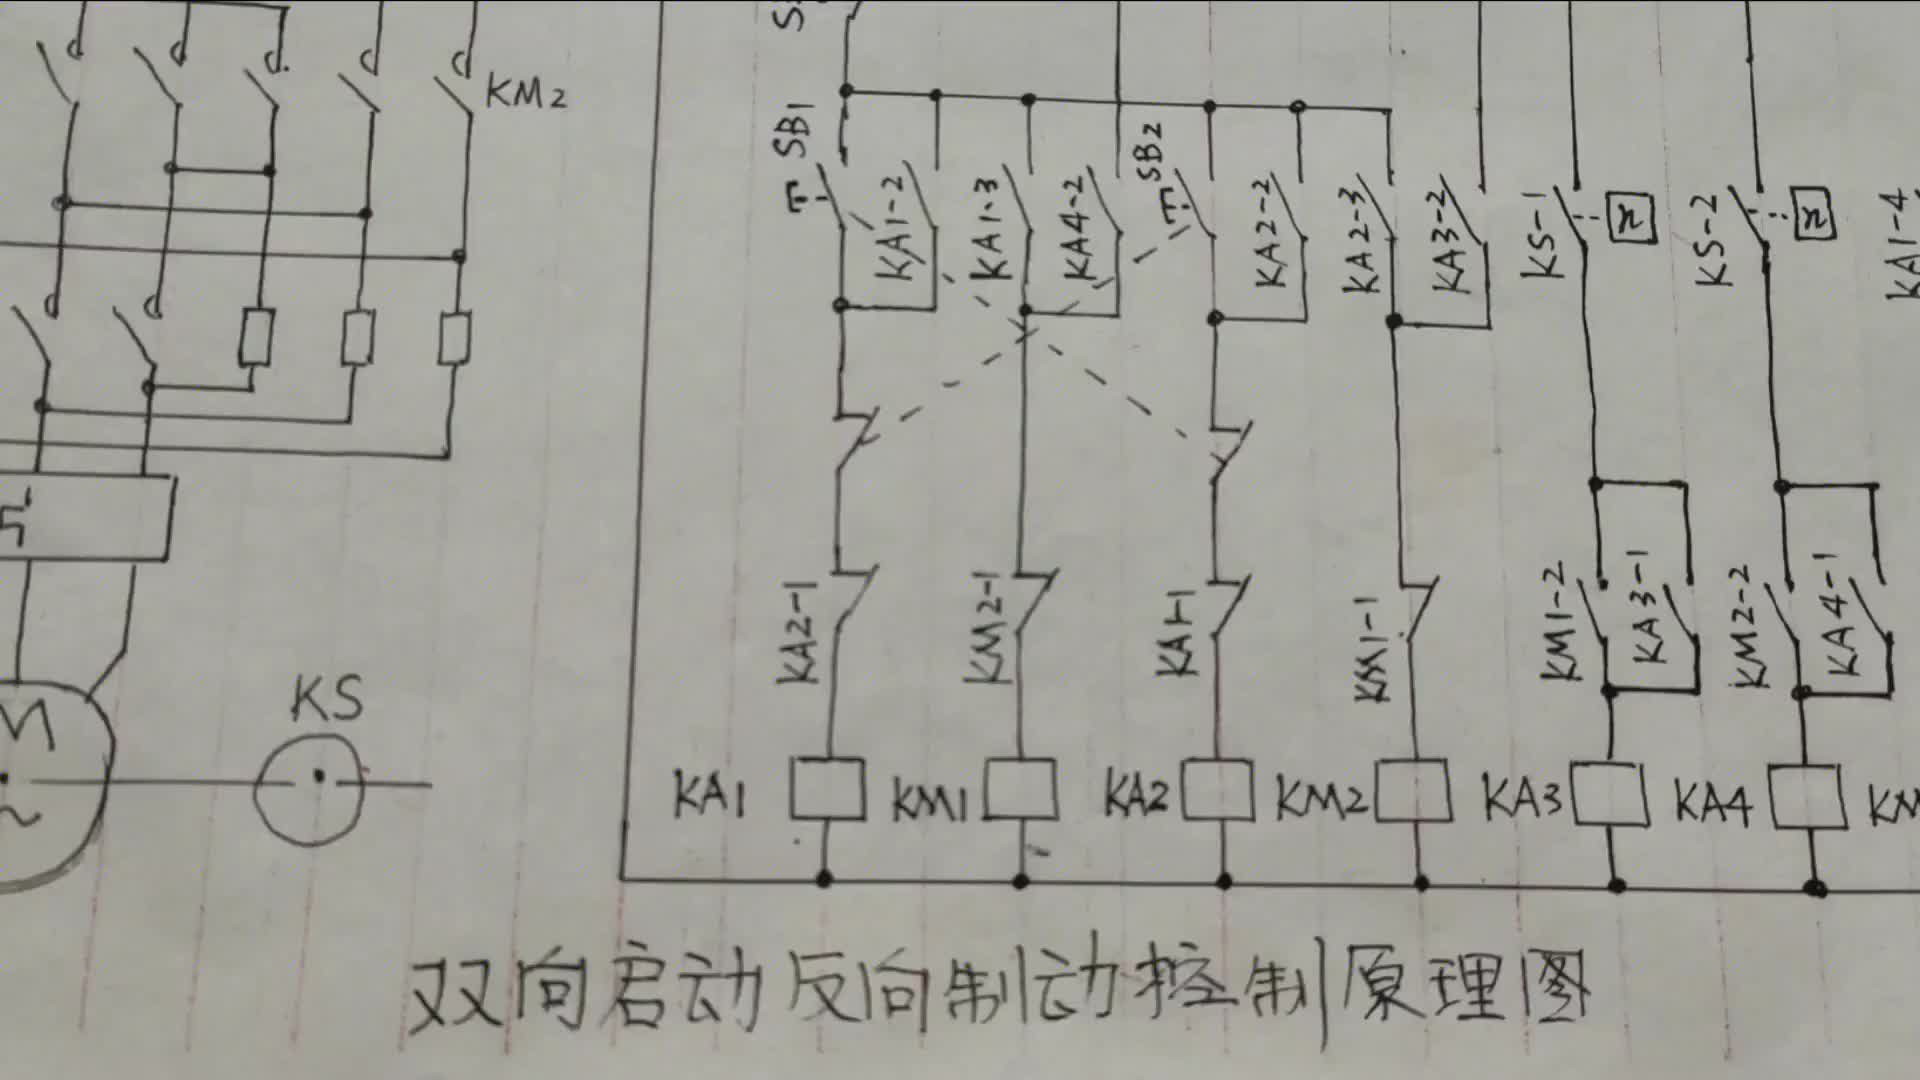 KM2
SB1
KA1-2
KA1-3
KA4-2
SB2
KA2-2
KA2-3
KA3-2
KS-1
n
KS-2
n
KA1-4
KA2-1
KM2-1
KA1-1
KM1-1
KM1-2
KA3-1
KM2-2
KA4-1
M
KS
KA1
KM1
KA2
KM2
KA3
KA4
双向启动反向制动控制原理图